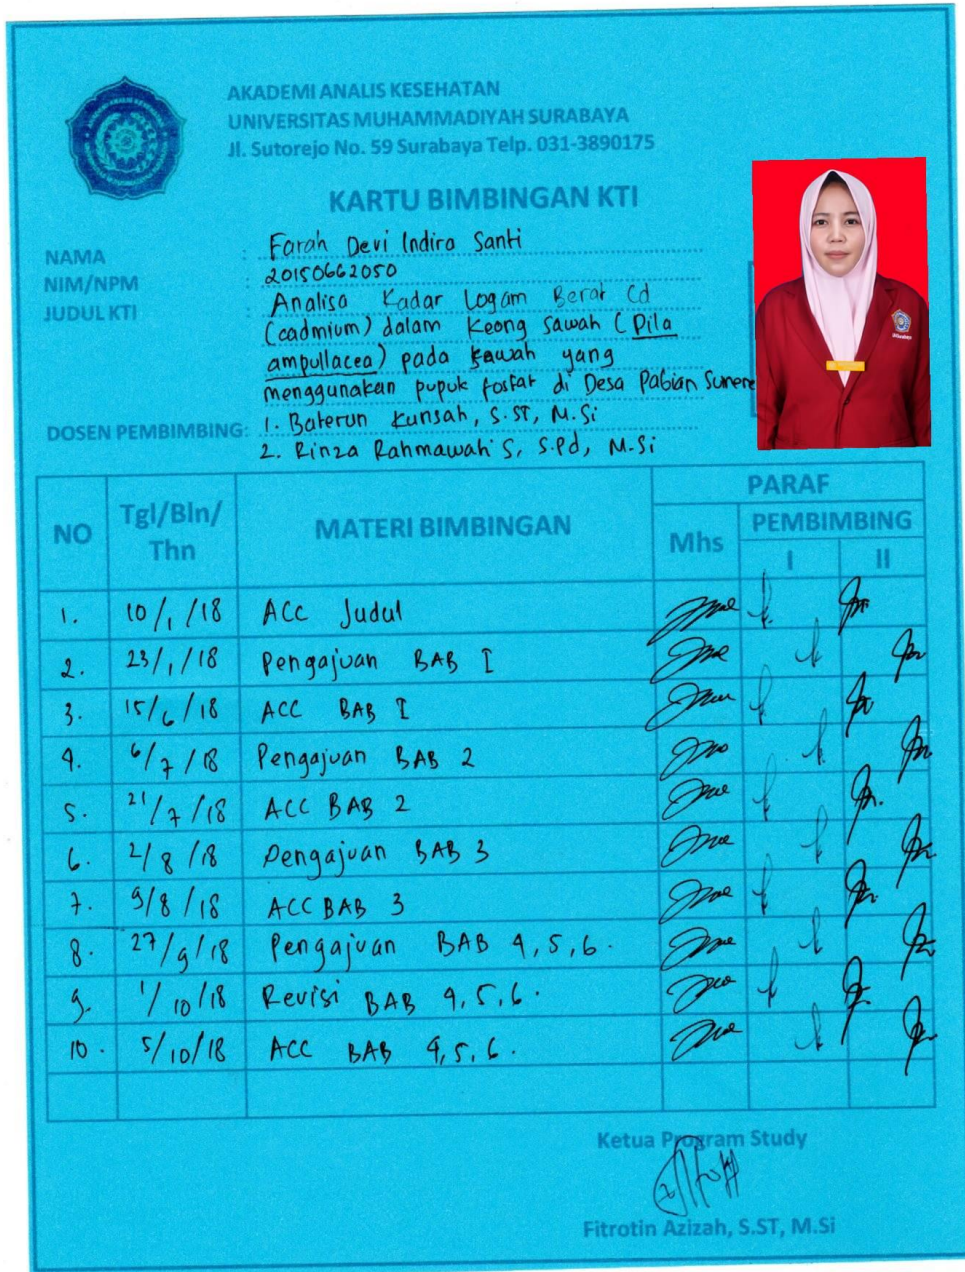 AKADEMI ANALIS KESEHATAN
UNIVERSITAS MUHAMMADIYAH SURABAYA
Jl. Sutorejo No. 59 Surabaya Telp. 031-3890175
KARTU BIMBINGAN KTI
NAMA : Farah Devi Indira Santi
NIM/NPM : 20150662050
JUDUL KTI : Analisa Kadar Logam Berat Cd
(cadmium) dalam Keong Sawah (Pila
ampullacea) pada sawah yang
menggunakan pupuk fosfat di Desa Pabian Sumene
DOSEN PEMBIMBING: 1. Baterun Kunsah, S.ST, M.Si
2. Rinza Rahmawati S, S.Pd, M.Si
NO Tgl/Bln/Thn MATERI BIMBINGAN PARAF
Mhs PEMBIMBING
I II
1. 10/1/18 ACC Judul
2. 23/1/18 Pengajuan BAB I
3. 15/6/18 ACC BAB I
4. 6/7/18 Pengajuan BAB 2
5. 21/7/18 ACC BAB 2
6. 2/8/18 Pengajuan BAB 3
7. 9/8/18 ACC BAB 3
8. 27/9/18 Pengajuan BAB 4,5,6.
9. 1/10/18 Revisi BAB 4,5,6.
10. 5/10/18 ACC BAB 4,5,6.
Ketua Program Study
Fitrotin Azizah, S.ST, M.Si